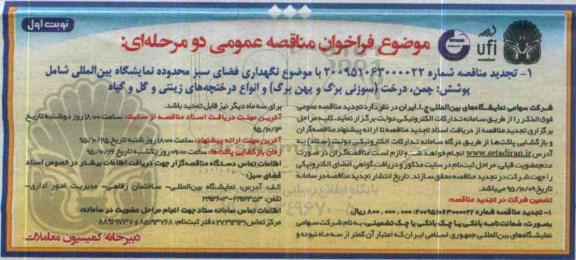 نوبت اول
موضوع فراخوان مناقصه عمومی دو مرحله‌ای:
ufi
۱- تجدید مناقصه شماره ۲۰۰۹۵۱۰۶۳۰۰۰۰۲۲ با موضوع نگهداری فضای سبز محدوده نمایشگاه بین‌المللی شامل
پوشش: چمن، درخت (سوزنی برگ و پهن برگ) و انواع درختچه‌های زینتی و گل و گیاه
شرکت سهامی نمایشگاه‌های بین‌المللی ج.ا.ایران در نظر دارد تجدید مناقصه عمومی
فوق‌الذکر را از طریق سامانه تدارکات الکترونیکی دولت برگزار نماید. کلیه مراحل
برگزاری تجدید مناقصه از دریافت اسناد تجدید مناقصه تا ارائه پیشنهاد مناقصه‌گران
و بازگشایی پاکت‌ها از طریق درگاه سامانه تدارکات الکترونیکی دولت (ستاد) به
آدرس www.setadiran.ir انجام خواهد شد و لازم است مناقصه‌گران در صورت
عدم عضویت قبلی، مراحل ثبت‌نام در سایت مذکور و دریافت گواهی امضای الکترونیکی
را جهت شرکت در تجدید مناقصه محقق سازند. تاریخ انتشار تجدید مناقصه در سامانه
تاریخ می‌باشد.
تضمین شرکت در مناقصه:
۱- تجدید مناقصه شماره ۲۰۰۹۵۱۰۶۳۰۰۰۰۲۲ ریال
بصورت: ضمانت‌نامه بانکی یا چک بانکی یا چک تضمینی، به نام شرکت سهامی
نمایشگاه‌های بین‌المللی جمهوری اسلامی ایران که اعتبار آن کمتر از سه ماه نبوده و
برای سه ماه دیگر نیز قابل تمدید باشد.
آخرین مهلت دریافت اسناد مناقصه از سایت: ساعت ۱۸:۰۰ روز دوشنبه تاریخ
۹۵/۱۰/۱۳
آخرین مهلت ارائه پیشنهاد: ساعت ۱۸:۰۰ روز شنبه تاریخ ۹۵/۱۰/۲۵
زمان بازگشایی پاکت‌ها: ساعت روز یکشنبه تاریخ ۹۵/۱۰/۲۶
اطلاعات تماس دستگاه مناقصه‌گزار جهت دریافت اطلاعات بیشتر در خصوص اسناد
فضای سبز:
الف: آدرس: نمایشگاه بین‌المللی– ساختمان رفاهی– مدیریت امور اداری–
تلفن:
اطلاعات تماس سامانه ستاد جهت انجام مراحل عضویت در سامانه:
مرکز تماس دفتر ثبت‌نام: ۸۸۹۶۹۷۳۷ و ۸۵۱۹۳۷۶۸
دبیرخانه کمیسیون معاملات